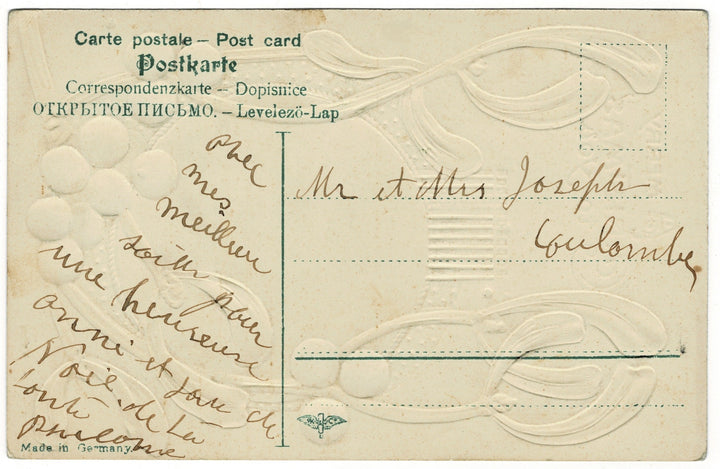 Carte postale – Post card
Postkarte
Correspondenzkarte – Dopisnice
ОТКРЫТОЕ ПИСЬМО. – Levelezö-Lap
avec
mes
meilleur
pour
une heureuse
anni et jour de
Noël de La
tante
Made in Germany.
Mr et Mrs Joseph
Coulombe